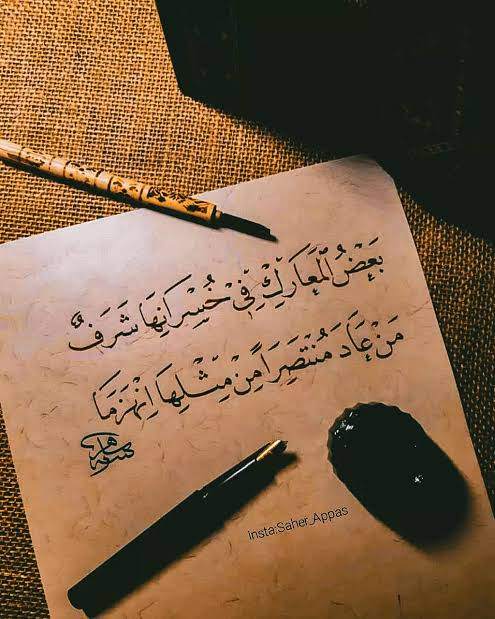 بَعْضُ الْمَعَارِكِ فِيْ خُسْرَانِهَا شَرَفٌ
مَنْ عَادَ مُنْتَصِرَاً مِنْ مِثْلِهَا اِنْهَزَمَا
Insta:Saher_Appas